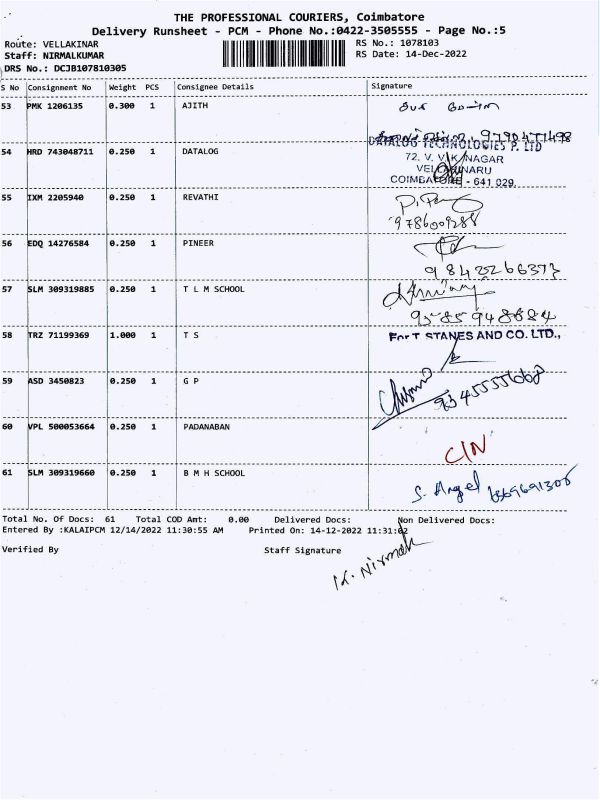 THE PROFESSIONAL COURIERS, Coimbatore
Delivery Runsheet - PCM - Phone No.:0422-3505555 - Page No.:5
Route: VELLAKINAR
RS No.: 1078103
Staff: NIRMALKUMAR
RS Date: 14-Dec-2022
DRS No.: DCJB107810305
S No Consignment No Weight PCS Consignee Details Signature
53 PMK 1206135 0.300 1 AJITH
9790471498
DATALOG TECHNOLOGIES P. LTD
54 HRD 743048711 0.250 1 DATALOG
72, V. V. K. NAGAR
COIMBATORE - 641 029.
55 IXM 2205940 0.250 1 REVATHI
9786009288
56 EDQ 14276584 0.250 1 PINEER
57 SLM 309319885 0.250 1 T L M SCHOOL
58 TRZ 71199369 1.000 1 T S
For T STANES AND CO. LTD.,
59 ASD 3450823 0.250 1 G P
60 VPL 500053664 0.250 1 PADANABAN
C/N
61 SLM 309319660 0.250 1 B M H SCHOOL
S. Angel
Total No. Of Docs: 61 Total COD Amt: 0.00 Delivered Docs: Non Delivered Docs:
Entered By :KALAIPCM 12/14/2022 11:30:55 AM Printed On: 14-12-2022 11:31:02
Verified By Staff Signature
K. Nirmal